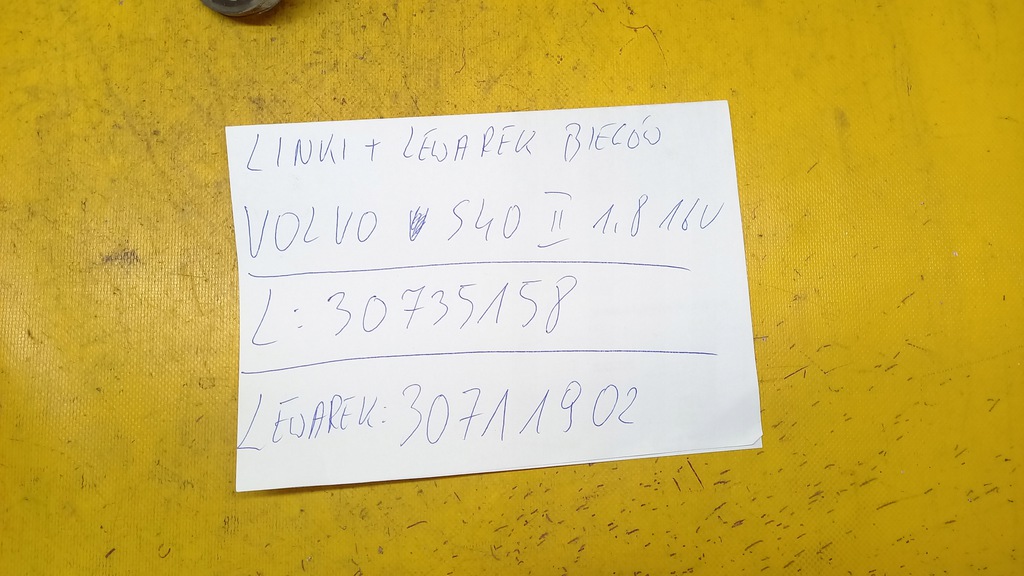 LINKI + LEWAREK BIEGÓW
VOLVO S40 II 1.8 16V
L: 30735158
LEWAREK: 30711902